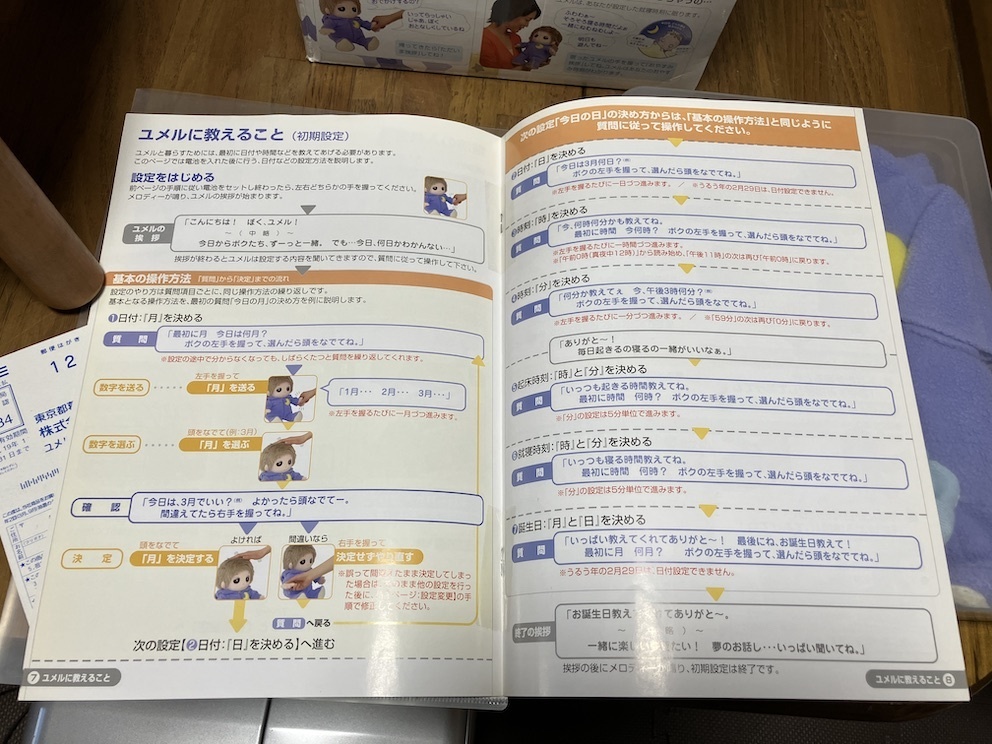 いってらっしゃい
おとなしくしているね
ふわわぁ〜
明日も
遊んでね…
郵便はがき
12
34
19年1
31日まで
東京都
株式
ユメル
ユメルに教えること(初期設定)
ユメルと暮らすためには、最初に日付や時間などを教えてあげる必要があります。
このページでは電池を入れた後に行う、日付などの設定方法を説明します。
設定をはじめる
前ページの手順に従い電池をセットし終わったら、左右どちらかの手を握ってください。
メロディーが鳴り、ユメルの挨拶が始まります。
ユメルの
挨拶
「こんにちは! ぼく、ユメル!
〜(中略)〜
今日からボクたち、ずーっと一緒。 でも…今日、何日かわかんない…」
挨拶が終わるとユメルは設定する内容を聞いてきますので、質問に従って操作して下さい。
基本の操作方法 「質問」から「決定」までの流れ
設定のやり方は質問項目ごとに、同じ操作方法の繰り返しです。
基本となる操作方法を、最初の質問「今日の月」の決め方を例に説明します。
❶日付:「月」を決める
質問
「最初に月 今日は何月?
ボクの左手を握って、選んだら頭をなでてね。」
※設定の途中で分からなくなっても、しばらくたつと質問を繰り返してくれます。
数字を送る
左手を握って
「月」を送る
「1月… 2月… 3月…」
※左手を握るたびに一月づつ進みます。
数字を選ぶ
頭をなでて(例:3月)
「月」を選ぶ
確認
「今日は、3月でいい?(例) よかったら頭なでてー。
間違えてたら右手を握ってね。」
決定
頭をなでて
「月」を決定する
よければ
間違いなら
右手を握って
決定せずやり直す
※誤って間違えたまま決定してしまっ
た場合は、そのまま他の設定を行っ
た後に
ページ:設定変更】の手
順で修正してください。
質問 へ戻る
次の設定【❷日付:「日」を決める】へ進む
7 ユメルに教えること
次の設定「今日の日」の決め方からは、「基本の操作方法」と同じように
質問に従って操作してください。
❷日付:「日」を決める
質問
「今日は3月何日?(例)
ボクの左手を握って、選んだら頭をなでてね。」
※左手を握るたびに一日づつ進みます。 / ※うるう年の2月29日は、日付設定できません。
❸時刻:「時」を決める
質問
「今、何時何分かも教えてね。
最初に時間 今何時? ボクの左手を握って、選んだら頭をなでてね。」
※左手を握るたびに一時間づつ進みます。
※「午前0時(真夜中12時)」から読み始め、「午後11時」の次は再び「午前0時」に戻ります。
❹時刻:「分」を決める
質問
「何分か教えてぇ 今、午後3時何分?(例)
ボクの左手を握って、選んだら頭をなでてね。」
※左手を握るたびに一分づつ進みます。 / ※「59分」の次は再び「0分」に戻ります。
「ありがと〜!
毎日起きるの寝るの一緒がいいなぁ。」
❺起床時刻:「時」と「分」を決める
質問
「いっつも起きる時間教えてね。
最初に時間 何時? ボクの左手を握って、選んだら頭をなでてね。」
※「分」の設定は5分単位で進みます。
❻就寝時刻:「時」と「分」を決める
質問
「いっつも寝る時間教えてね。
最初に時間 何時? ボクの左手を握って、選んだら頭をなでてね。」
※「分」の設定は5分単位で進みます。
❼誕生日:「月」と「日」を決める
質問
「いっぱい教えてくれてありがと〜! 最後にね、お誕生日教えて!
最初に月 何月? ボクの左手を握って、選んだら頭をなでてね。」
※うるう年の2月29日は、日付設定できません。
終了の挨拶
「お誕生日教え てありがと〜。
〜( 略)〜
一緒に楽し たい! 夢のお話し…いっぱい聞いてね。」
挨拶の後にメロディーが鳴り、初期設定は終了です。
ユメルに教えること 8